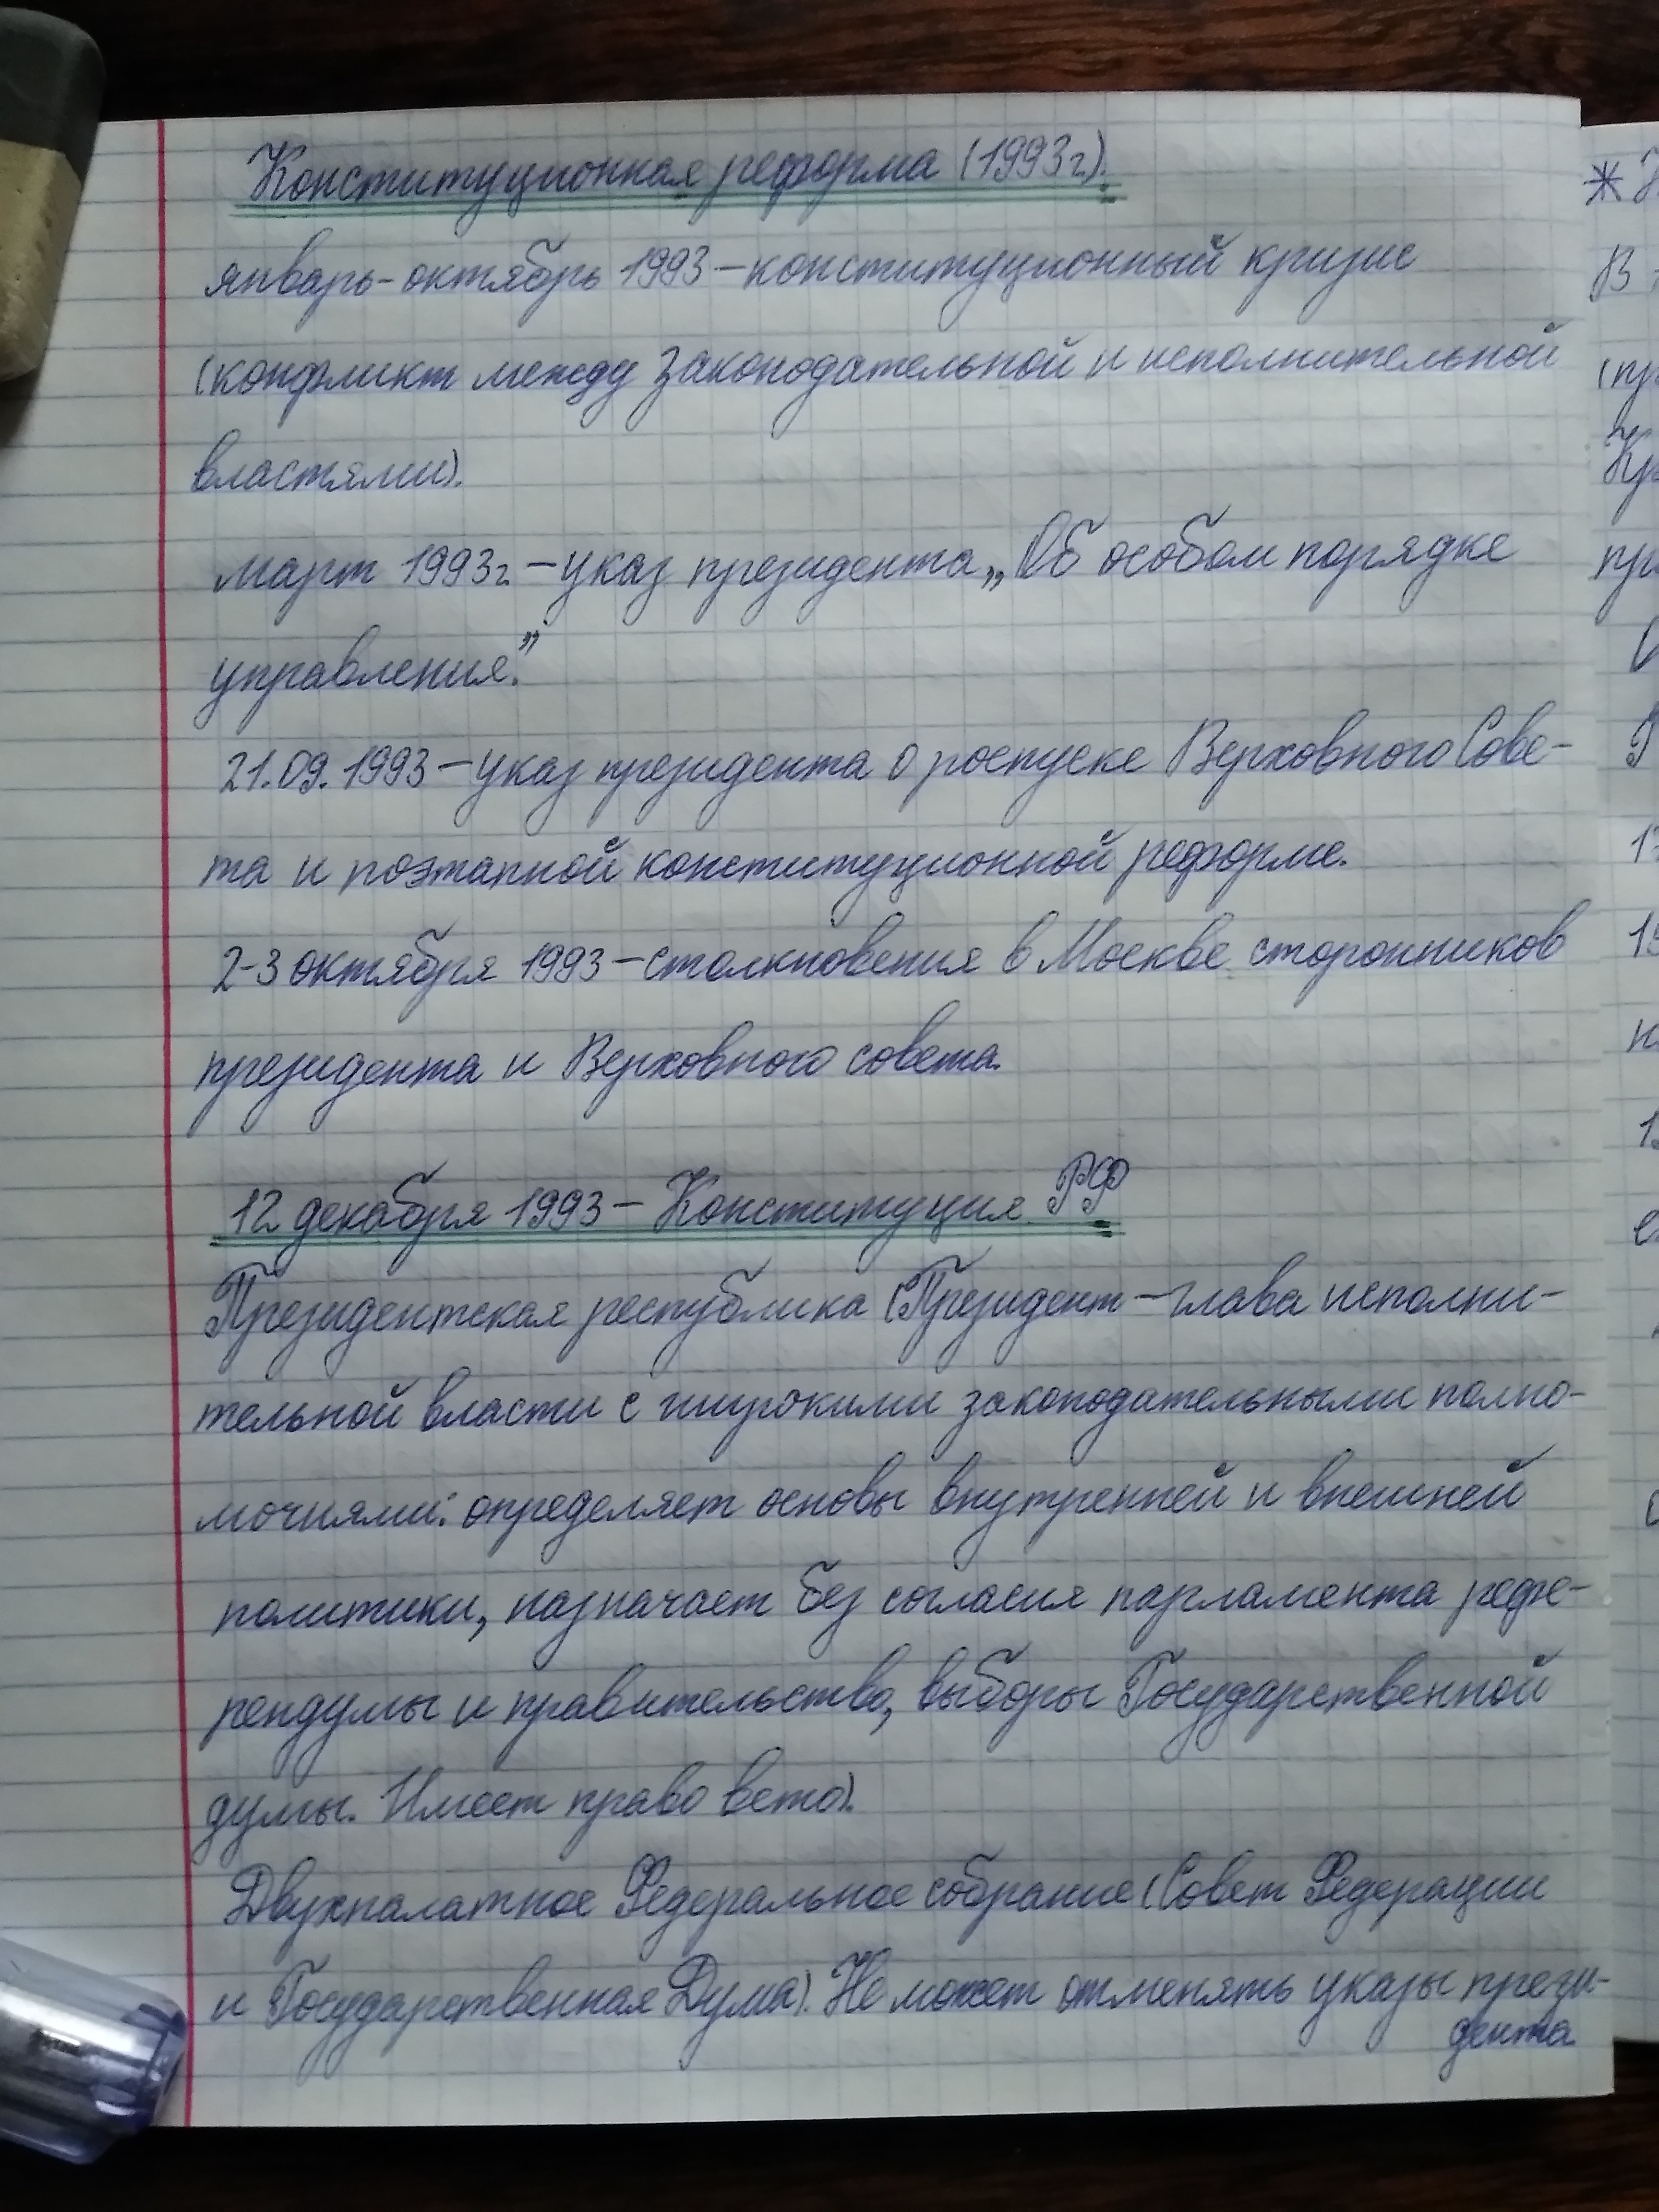 Конституционная реформа (1993г.).
январь-октябрь 1993 – конституционный кризис
(конфликт между законодательной и исполнительной
властями).
март 1993г. – указ президента „Об особом порядке
управления."
21.09.1993 – указ президента о роспуске Верховного Сове-
та и поэтапной конституционной реформе.
2-3 октября 1993 – столкновения в Москве сторонников
президента и Верховного совета.
12 декабря 1993 – Конституция РФ
Президентская республика (Президент – глава исполни-
тельной власти с широкими законодательными полно-
мочиями: определяет основы внутренней и внешней
политики, назначает без согласия парламента рефе-
рендумы и правительство, выборы Государственной
думы. Имеет право вето).
Двухпалатное Федеральное собрание (Совет Федерации
и Государственная Дума). Не может отменять указы прези-
дента